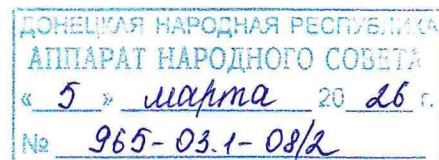 ДОНЕЦКАЯ НАРОДНАЯ РЕСПУБЛИКА
АППАРАТ НАРОДНОГО СОВЕТА
« 5 » марта 20 26 г.
№ 965-03.1-08/2